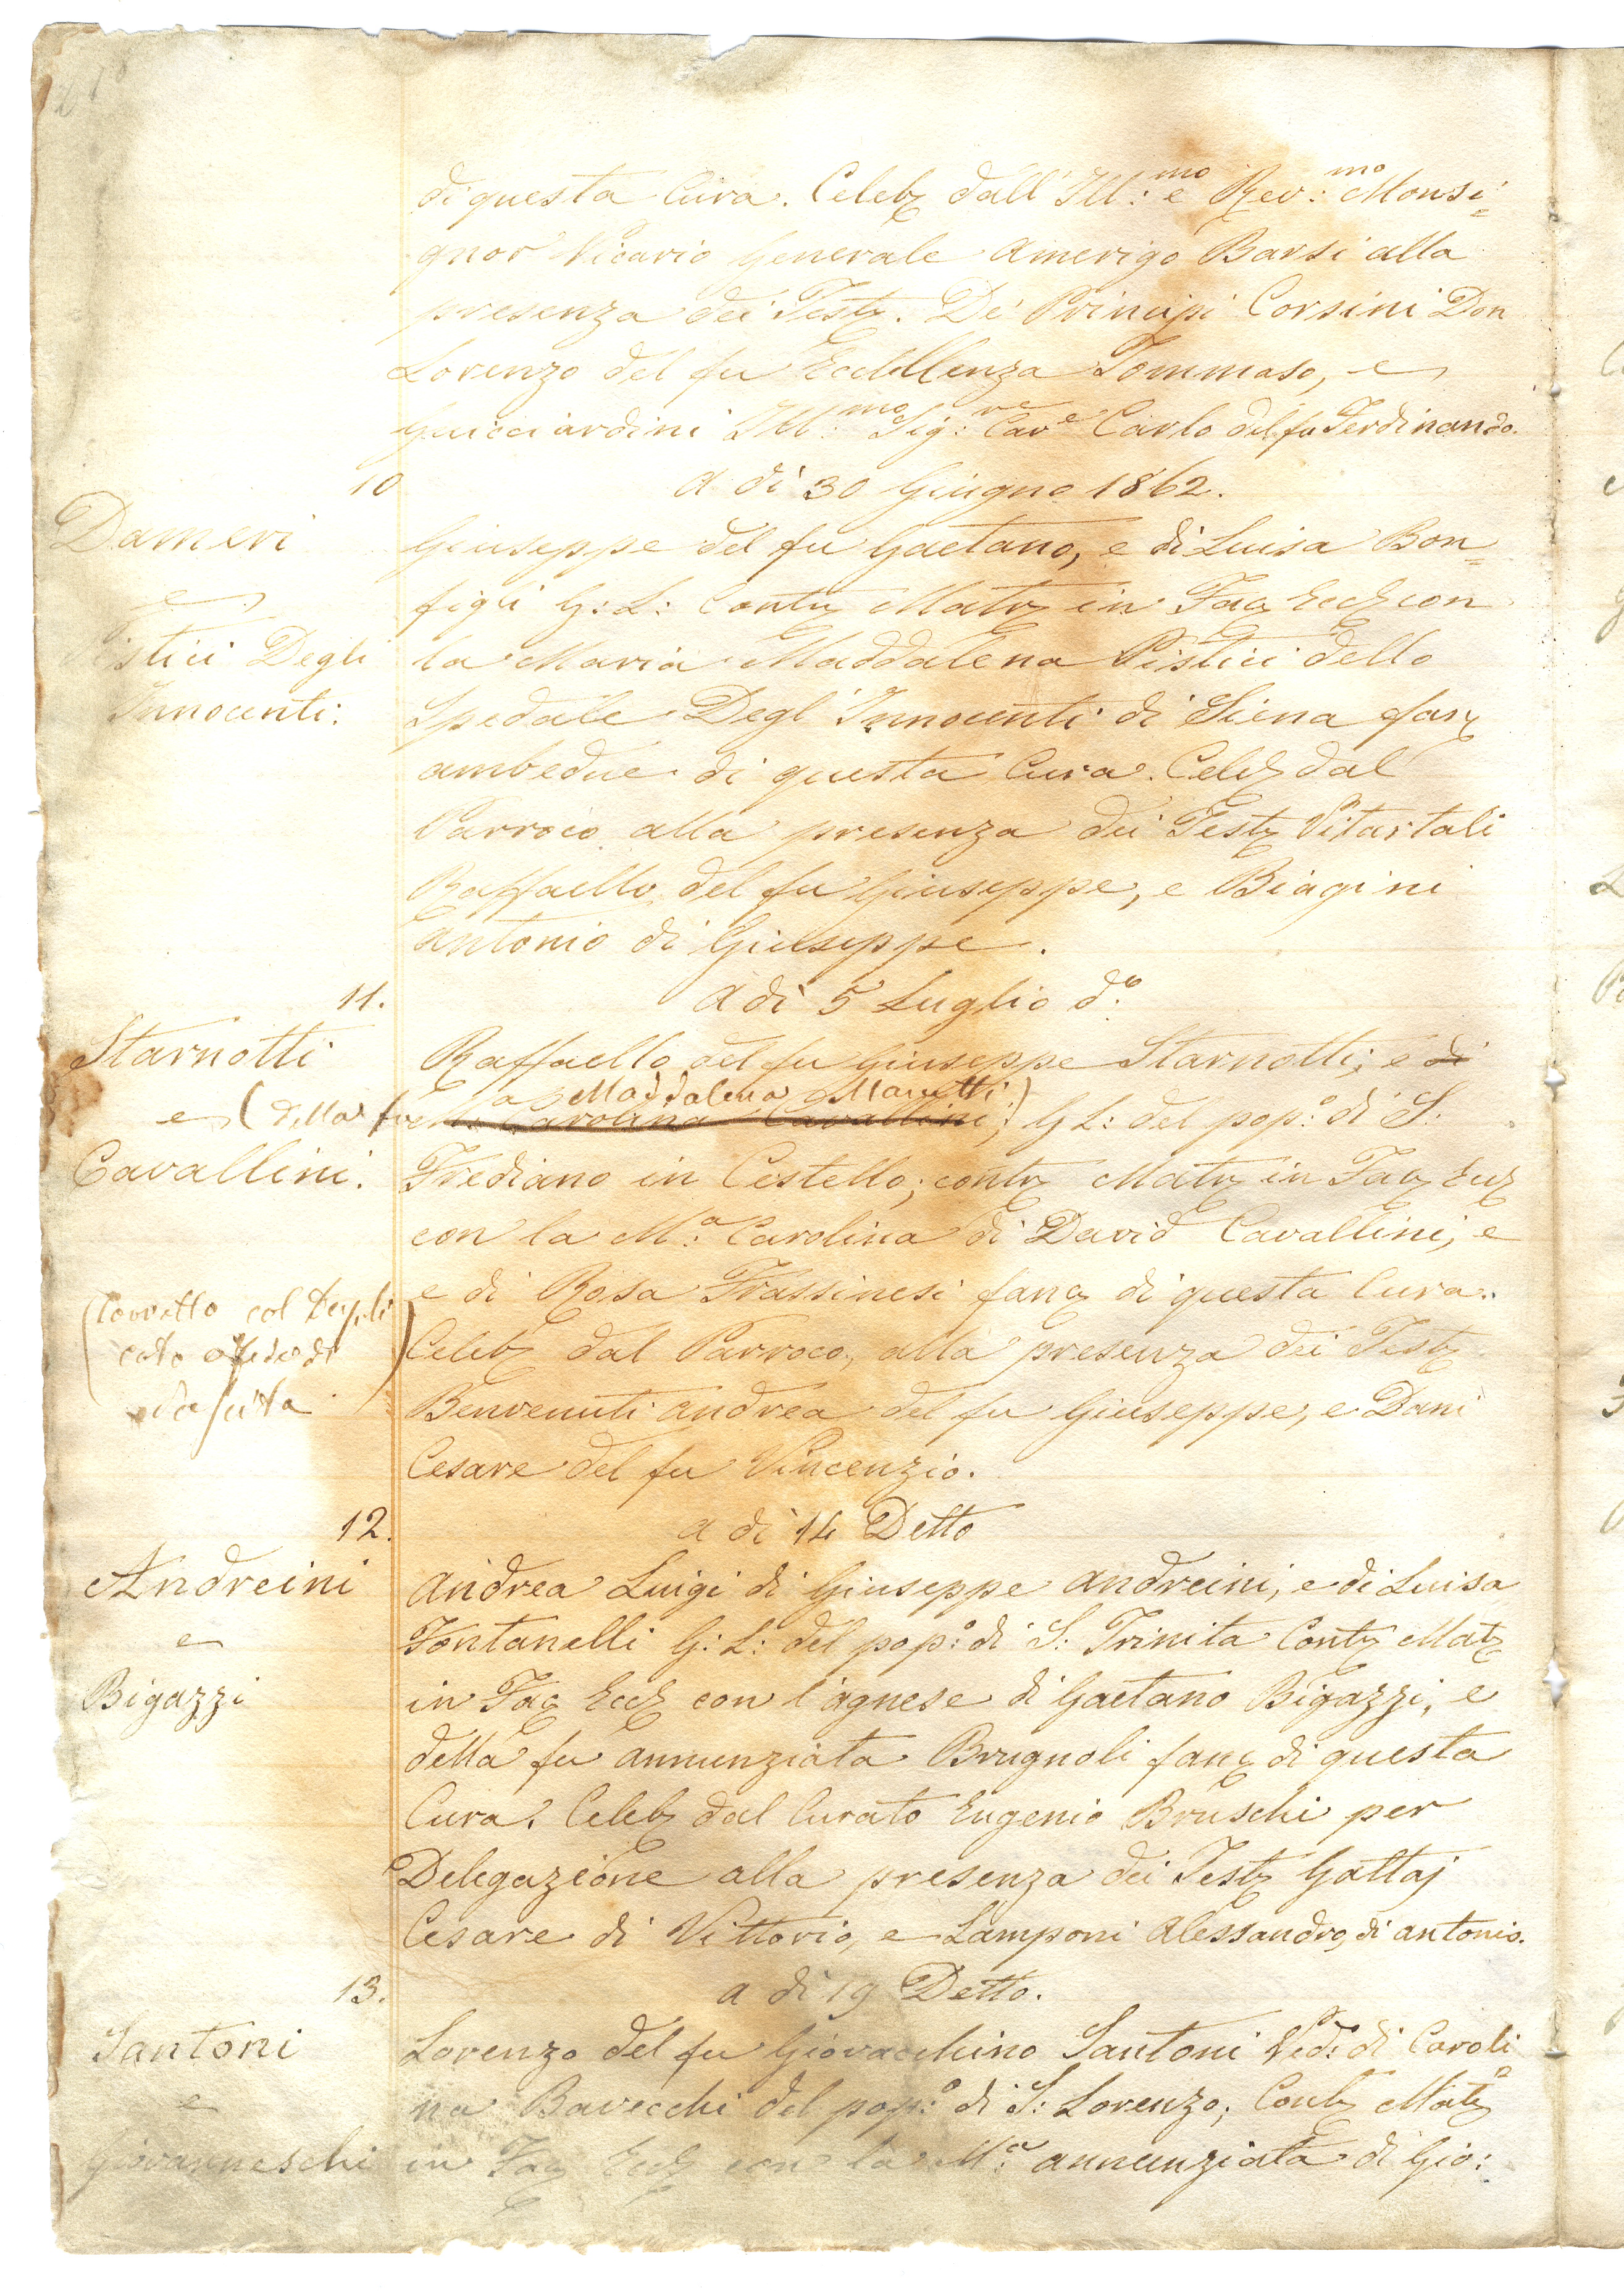 di questa Cura. Celebz dall' Ill:mo e Rev:mo Monsi=
gnor Vicario Generale Amerigo Barsi alla
presenza dei Testz. De' Principi Corsini Don
Lorenzo del fu Eccellenza Tommaso, e
Guicciardini Ill:mo Sig:re Cave Carlo del fu Ferdinando.
10
a dì 30 Giugno 1862.
Dameri
e
Pistici Degli
Innocenti:
Giuseppe del fu Gaetano, e di Luisa Bon=
figli G: L: Contz Matz in Faz Eccz con
la Maria Maddalena Pistici dello
Spedale Degl' Innocenti di Siena fanz
ambedue di questa Cura. Celebz dal
Parroco alla presenza dei Testz Vitartali
Raffaello del fu Giuseppe, e Biagini
Antonio di Giuseppe.
11.
A dì 5 Luglio do:
Starnotti
e
Cavallini.
Raffaello del fu Giuseppe Starnotti; e di
(della fu Maddalena Manetti)
Carolina Cavallini; G L: del pop:o di S.
Frediano in Cestello; contz Matz in Faz Eccz
con la M:a Carolina di David Cavallini, e
e di Rosa Frassinesi fanz di questa Cura.
(Corretto col Dupli
cato
Celebz dal Parroco, alla presenza dei Testz
Benvenuti Andrea del fu Giuseppe, e Dani
Cesare del fu Vincenzio.
12.
a dì 14 Detto
Andreini
e
Bigazzi
Andrea Luigi di Giuseppe Andreini, e di Luisa
Fontanelli G: L: del pop:o di S: Trinita Contz Matz
in Faz Eccz con l'Agnese di Gaetano Bigazzi, e
della fu Annunziata Brugnoli fanz di questa
Cura. Celebz dal Curato Eugenio Bruschi per
Delegazione alla presenza dei Testz Gattaj
Cesare di Vittorio, e Lamponi Alessandro, di Antonio.
13.
a dì 19 Detto.
Santoni
e
Giovanneschi
Lorenzo del fu Giovacchino Santoni Ved:o di Caroli
na Bavecchi del pop:o di S: Lorenzo; Contz Matz
in Faz Eccz con la M:a Annunziata di Gio: